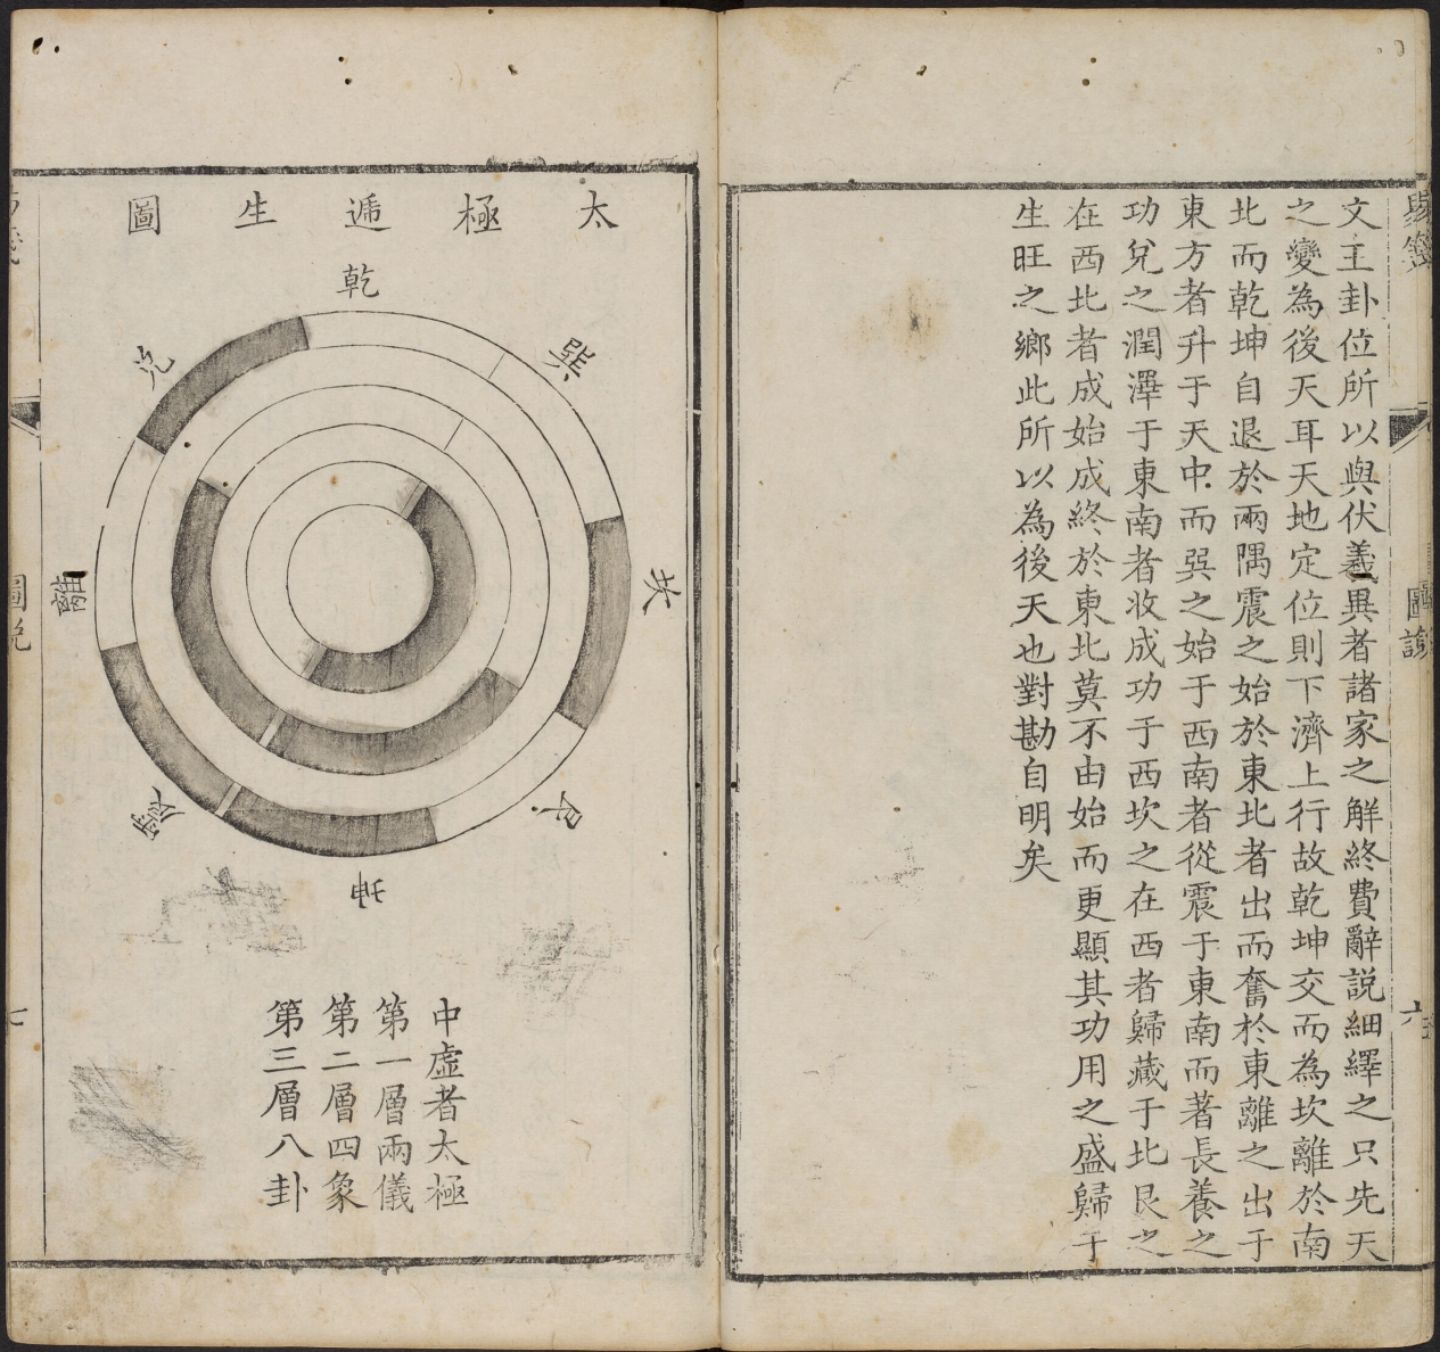 文王卦位所以與伏羲異者諸家之解終費辭說細繹之只先天
之變為後天耳天地定位則下濟上行故乾坤交而為坎離於南
北而乾坤自退於兩隅震之始於東北者出而奮於東離之出于
東方者升于天中而巽之始于西南者從震于東南而著長養之
功兌之潤澤于東南者收成功于西坎之在西者歸藏于北艮之
在西北者成始成終於東北莫不由始而更顯其功用之盛歸于
生旺之鄉此所以為後天也對勘自明矣
圖說
六
太極遞生圖
乾
兌
巽
離
坎
震
艮
坤
中虛者太極
第一層兩儀
第二層四象
第三層八卦
圖說
七